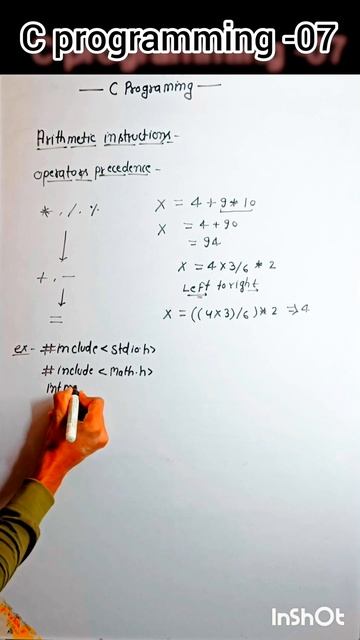 C programming -07
C Programing
Arithmetic instructions -
operators precedence -
*, /, %
+, -
=
X = 4 + 9 * 10
X = 4 + 90
= 94
X = 4 x 3/6 * 2
Left to right
X = ((4x3)/6)*2 => 4
ex - # include < stdio.h>
# include < math.h>
int m
InShOt